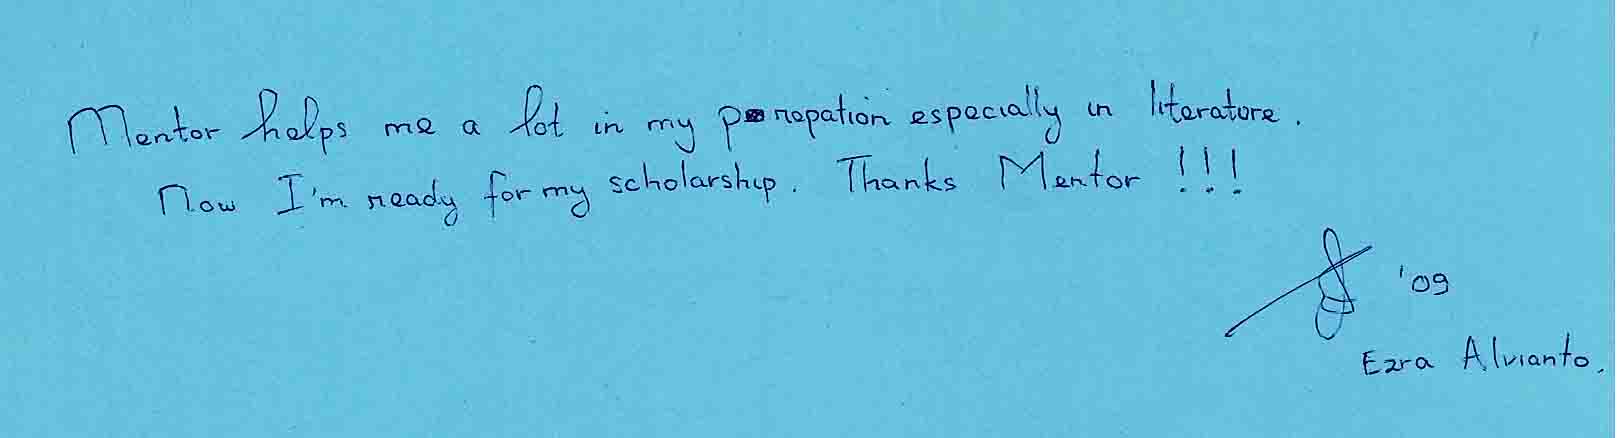 Mentor helps me a lot in my prepation especially in literature.
Now I'm ready for my scholarship. Thanks Mentor !!!
'09
Ezra Alvianto.